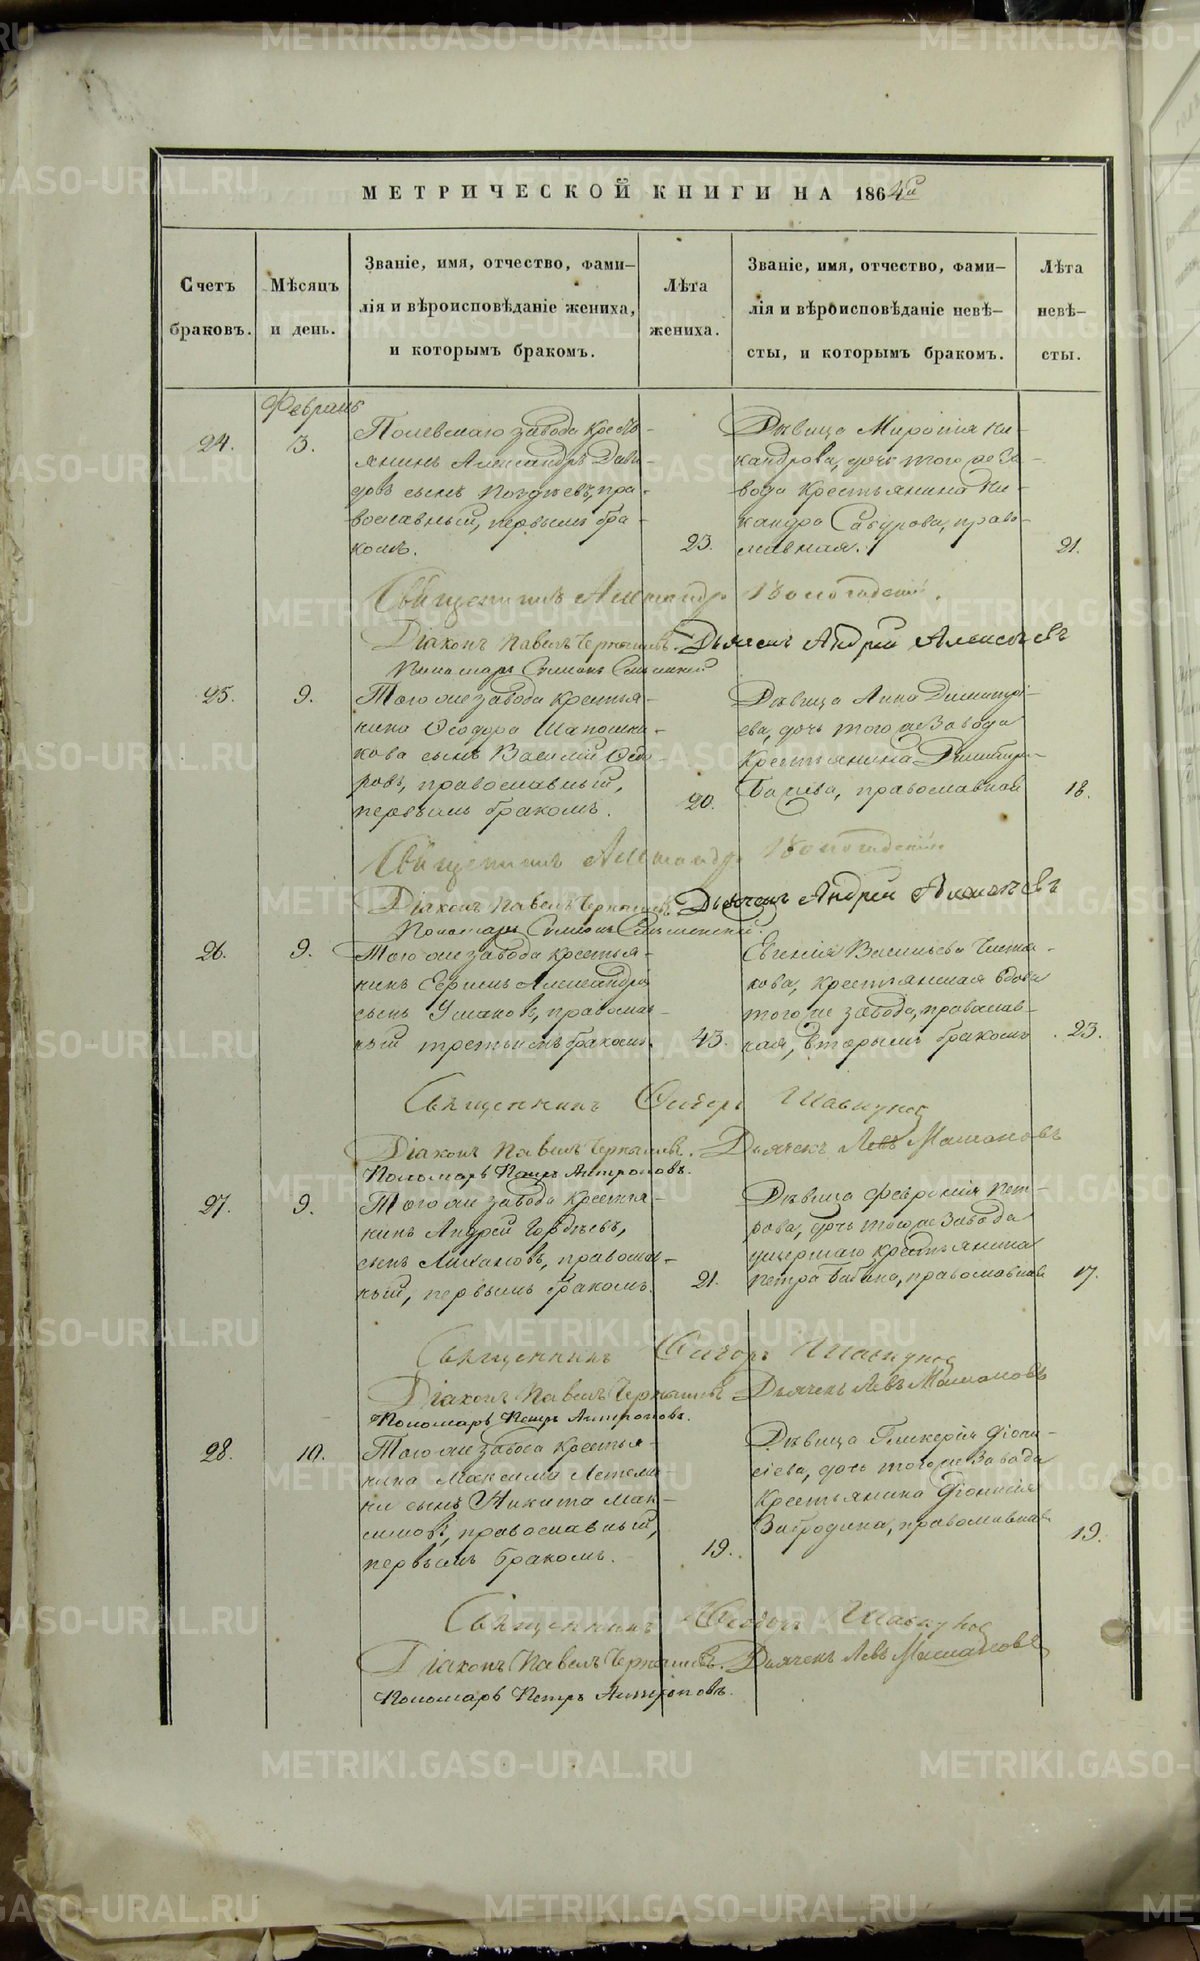 МЕТРИЧЕСКОЙ КНИГИ НА 1864й
Счетъ браковъ.
Мѣсяцъ и день.
Званіе, имя, отчество, фами-
лія и вѣроисповѣданіе жениха,
и которымъ бракомъ.
Лѣта
жениха.
Званіе, имя, отчество, фами-
лія и вѣроисповѣданіе невѣ-
сты, и которымъ бракомъ.
Лѣта
невѣ-
сты.
Февраль
24.
3.
Полевскаго завода кресть-
янинъ Александръ Дави-
довъ сынъ пра-
вославный, первымъ бра-
комъ.
23.
Дѣвица Миропія Ни-
кандрова, дочь того же за-
вода крестьянина Ни-
кандра Сабурова, право-
славная.
21.
Священникъ Александръ
Діаконъ Павелъ Дьячекъ Андрей Алексѣевъ
Пономарь
25.
9.
Того же завода крестья-
нина Ѳеодора Шапошни-
кова сынъ Василій Ѳедо-
ровъ, православный,
первымъ бракомъ.
20.
Дѣвица Анна Димитрі-
ева, дочь того же завода
крестьянина Димитрія
православная
18.
Священникъ Александръ
Діаконъ Павелъ Дьячекъ Андрей Алексѣевъ
Пономарь
26.
9.
Того же завода крестья-
нинъ Александровъ
сынъ православ-
ный третьимъ бракомъ.
43.
Евгенія Васильева Чистя-
кова, крестьянская вдова
того же завода, православ-
ная, вторымъ бракомъ
23.
Священникъ Ѳедоръ
Діаконъ Павелъ Дьячекъ Левъ
Пономарь Петръ Антроповъ.
27.
9.
Того же завода крестья-
нинъ Андрей Гордѣевъ,
сынъ православ-
ный, первымъ бракомъ.
21.
Дѣвица Февронія Пет-
рова, дочь того же завода
умершаго крестьянина
Петра православная
17.
Священникъ Ѳедоръ
Діаконъ Павелъ Дьячекъ Левъ
Пономарь Петръ Антроповъ.
28.
10.
Того же завода крестья-
нина Максима
сынъ Никита Мак-
симовъ, православный,
первымъ бракомъ.
19.
Дѣвица Гликерія Діони-
сіева, дочь того же завода
крестьянина Діонисія
православная
19.
Священникъ Ѳедоръ
Діаконъ Павелъ Дьячекъ Левъ
Пономарь Петръ Антроповъ.
METRIKI.GASO-URAL.RU